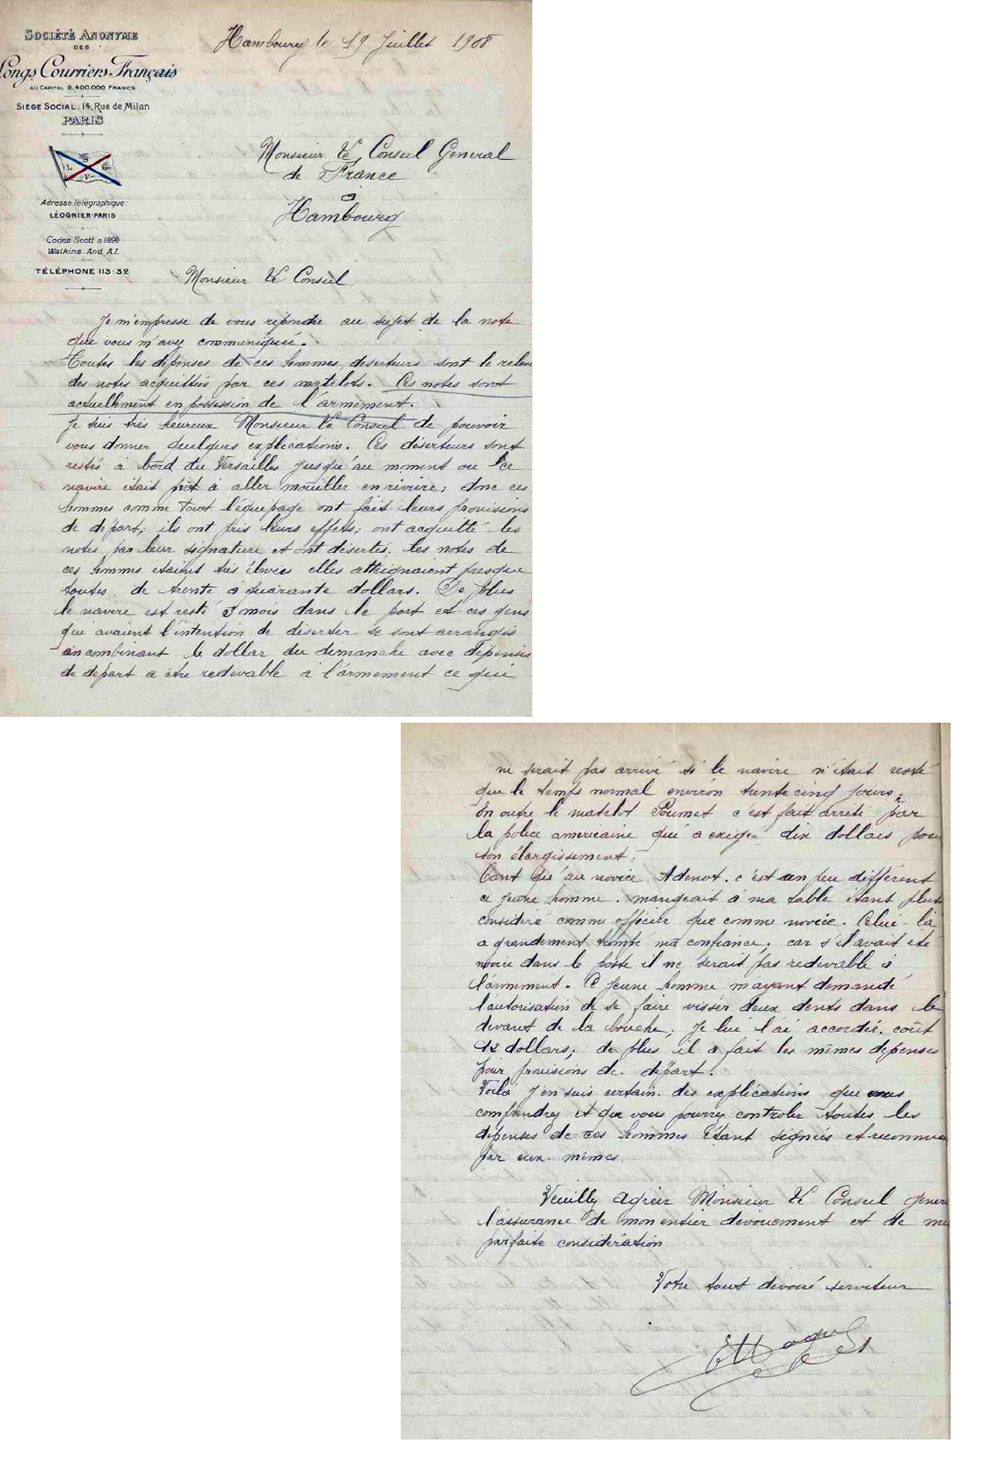 SOCIÉTÉ ANONYME
DES
Longs Courriers Français
AU CAPITAL 2.400.000 FRANCS
SIÈGE SOCIAL: 14, Rue de Milan
PARIS
L C F
Adresse Télégraphique:
LÉOGNIER-PARIS
Codes Scott's 1896
Watkins. And. A.I.
TÉLÉPHONE 113-32
Hambourg le 19 Juillet 1908
Monsieur le Consul General
de France
à
Hambourg
Monsieur le Consul
Je m'empresse de vous repondre au sujet de la note
que vous m'avez communiquée.
Toutes les dépenses de ces hommes deserteurs sont le relevé
des notes acquittées par ces matelots. Ces notes sont
actuellement en possession de l'armement.
Je suis très heureux Monsieur le Consul de pouvoir
vous donner quelques explications. Ces déserteurs sont
restés à bord du Versailles jusqu'au moment ou le
navire était prêt à aller mouiller en rivière; donc ces
hommes comme tout l'équipage ont fait leurs provisions
de départ; ils ont pris leurs effets; ont acquitté les
notes par leur signature et ont désertés, les notes de
ces hommes etaient très élevées elles atteignaient presque
toutes de trente à quarante dollars. De plus
le navire est resté 3 mois dans le port et ces gens
qui avaient l'intention de déserter se sont arrangés
en combinant le dollar du dimanche avec dépenses
de départ a être redevable à l'armement ce qui
ne serait pas arrivé si le navire n'était resté
que le temps normal environ trente cinq jours.
En outre le matelot Poumet c'est fait arrêté par
la police americaine qui a exigé dix dollars pour
son élargissement.
Tant qu'au novice Adenot. c'est un peu différent
ce jeune homme. mangeait à ma table étant plus
considéré comme officier que comme novice. Celui-là
a grandement trompé ma confiance. car s'il avait été
novice dans le poste il ne serait pas redevable à
l'armement. Ce jeune homme m'ayant demandé
l'autorisation de se faire visser deux dents dans le
devant de la bouche, je lui l'ai accordée. coût
12 dollars; de plus il a fait les mêmes dépenses
pour provisions de départ.
Voila j'en suis certain des explications que vous
comprendrez et que vous pourrez controler toutes les
dépenses de ces hommes étant signées et reconnues
par eux-mêmes.
Veuillez agréer Monsieur le Consul general
l'assurance de mon entier devouement et de ma
parfaite consideration
Votre tout dévoué serviteur